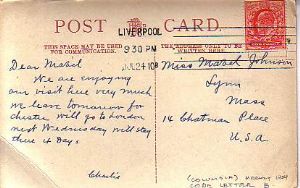 POST CARD.
LIVERPOOL
9 30 PM
JL 24 10
THIS SPACE MAY BE USED FOR COMMUNICATION.
Dear Mabel
We are enjoying
our visit here very much
we leave tomorrow for
chester will go to London
next Wednesday will stay
there 4 days.
Charlie
Miss Mabel Johnson
Lynn
Mass
14 Chatman Place
U.S.A.
LETTER B